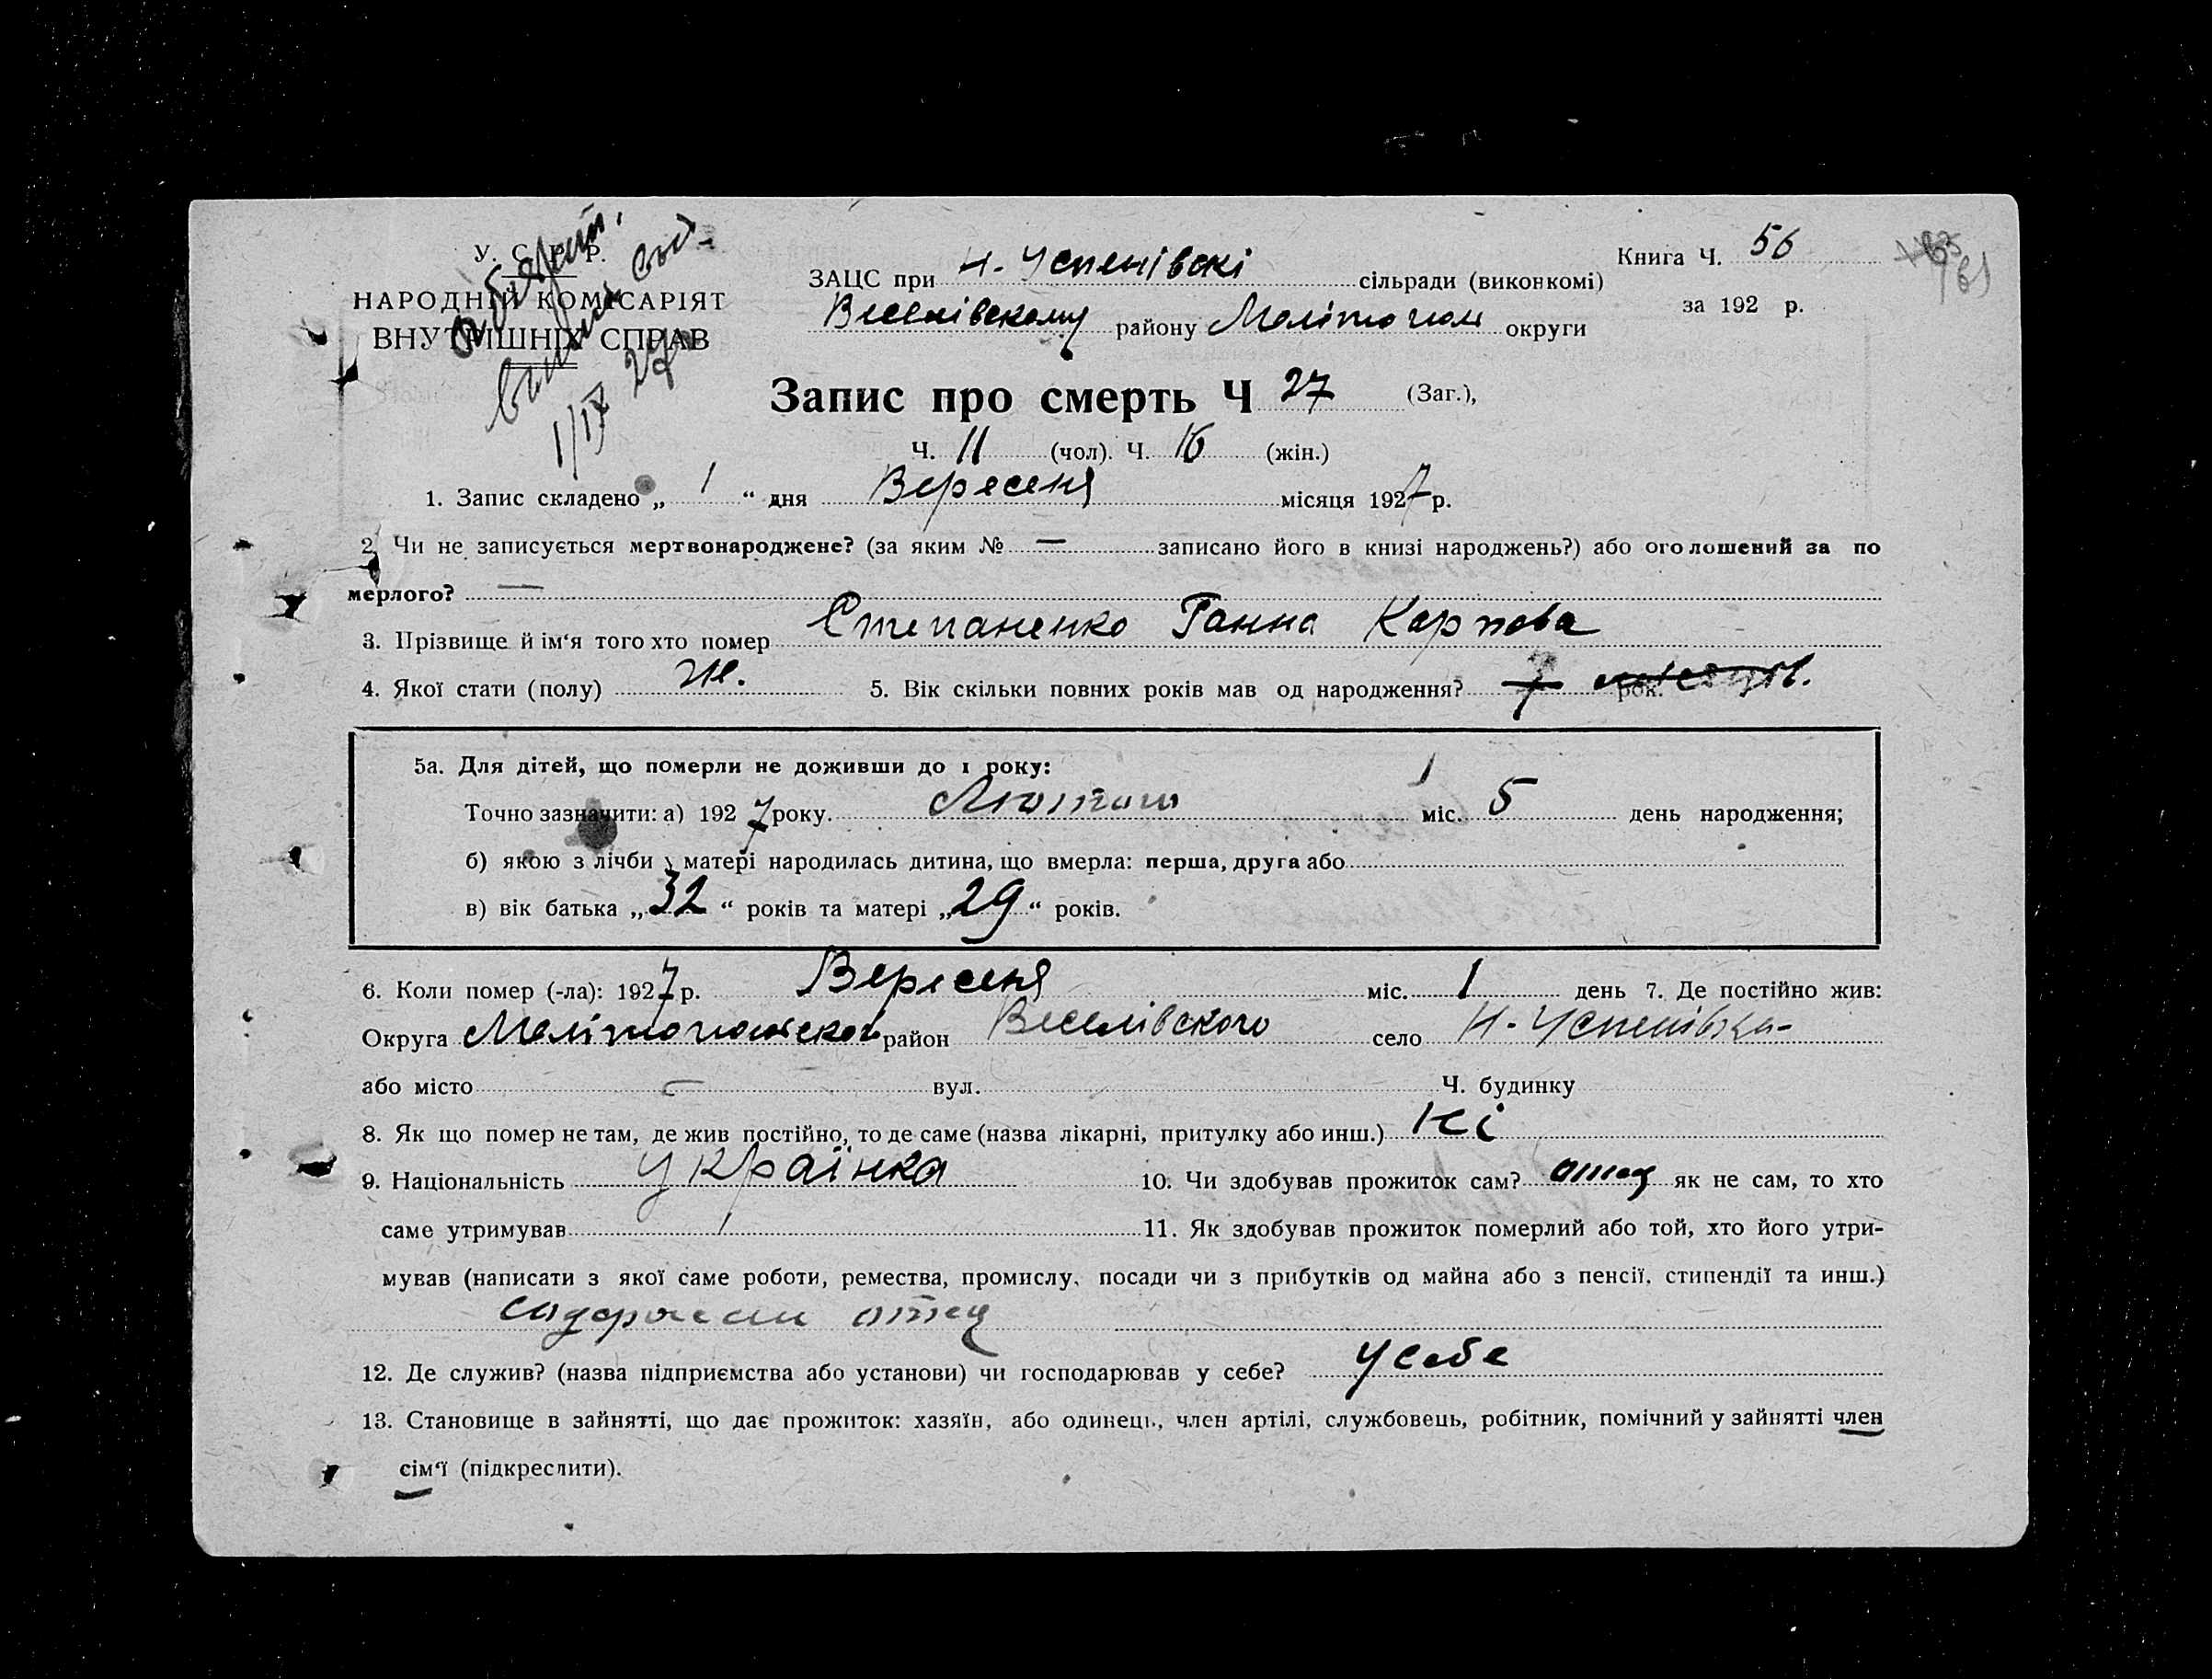 У. С. Р. Р.
НАРОДНІЙ КОМІСАРІЯТ
ВНУТРІШНІХ СПРАВ
1/IX 27
ЗАЦС при Н-Успенівскі сільради (виконкомі)
Веселівскому району Мелітопол округи
Книга Ч. 56
за 192 р.
Запис про смерть Ч 27 (Заг.),
Ч. 11 (чол). Ч. 16 (жін.)
1. Запис складено „ 1 “ дня Вересеня місяця 1927 р.
2. Чи не записується мертвонароджене? (за яким № — записано його в книзі народжень?) або оголошений за по
мерлого? —
3. Прізвище й ім‘я того хто помер Степаненко Ганна Карпова
4. Якої стати (полу) Ж. 5. Вік скільки повних років мав од народження? 7 рок.
5а. Для дітей, що померли не доживши до 1 року:
Точно зазначити: а) 1927 року. Лютого міс. 5 день народження;
б) якою з лічби у матері народилась дитина, що вмерла: перша, друга або
в) вік батька „ 32 “ років та матері „ 29 “ років.
6. Коли помер (-ла): 1927 р. Вересеня міс. 1 день 7. Де постійно жив:
Округа Мелітопольскоі район Веселівского село Н-Успенівка-
або місто — вул. Ч. будинку
8. Як що помер не там, де жив постійно, то де саме (назва лікарні, притулку або инш.) Ні
9. Національність Українка 10. Чи здобував прожиток сам? отец як не сам, то хто
саме утримував 11. Як здобував прожиток померлий або той, хто його утри-
мував (написати з якої саме роботи, ремества, промислу, посади чи з прибутків од майна або з пенсії, стипендії та инш.)
отец
12. Де служив? (назва підприємства або установи) чи господарював у себе? У себе
13. Становище в зайнятті, що дає прожиток: хазяїн, або одинець, член артілі, службовець, робітник, помічний у зайнятті член
сім‘ї (підкреслити).